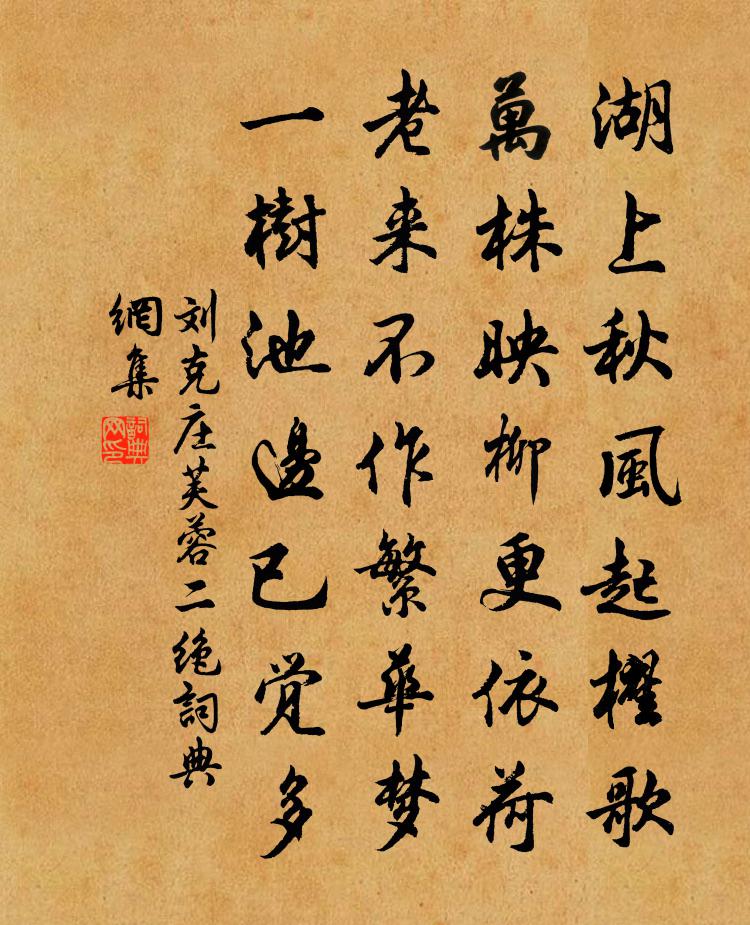 湖上秋風起櫂歌
萬株映柳更依荷
老来不作繁華梦
一樹池邊已觉多
刘克庄芙蓉二绝詞典
網集
詞典
网印